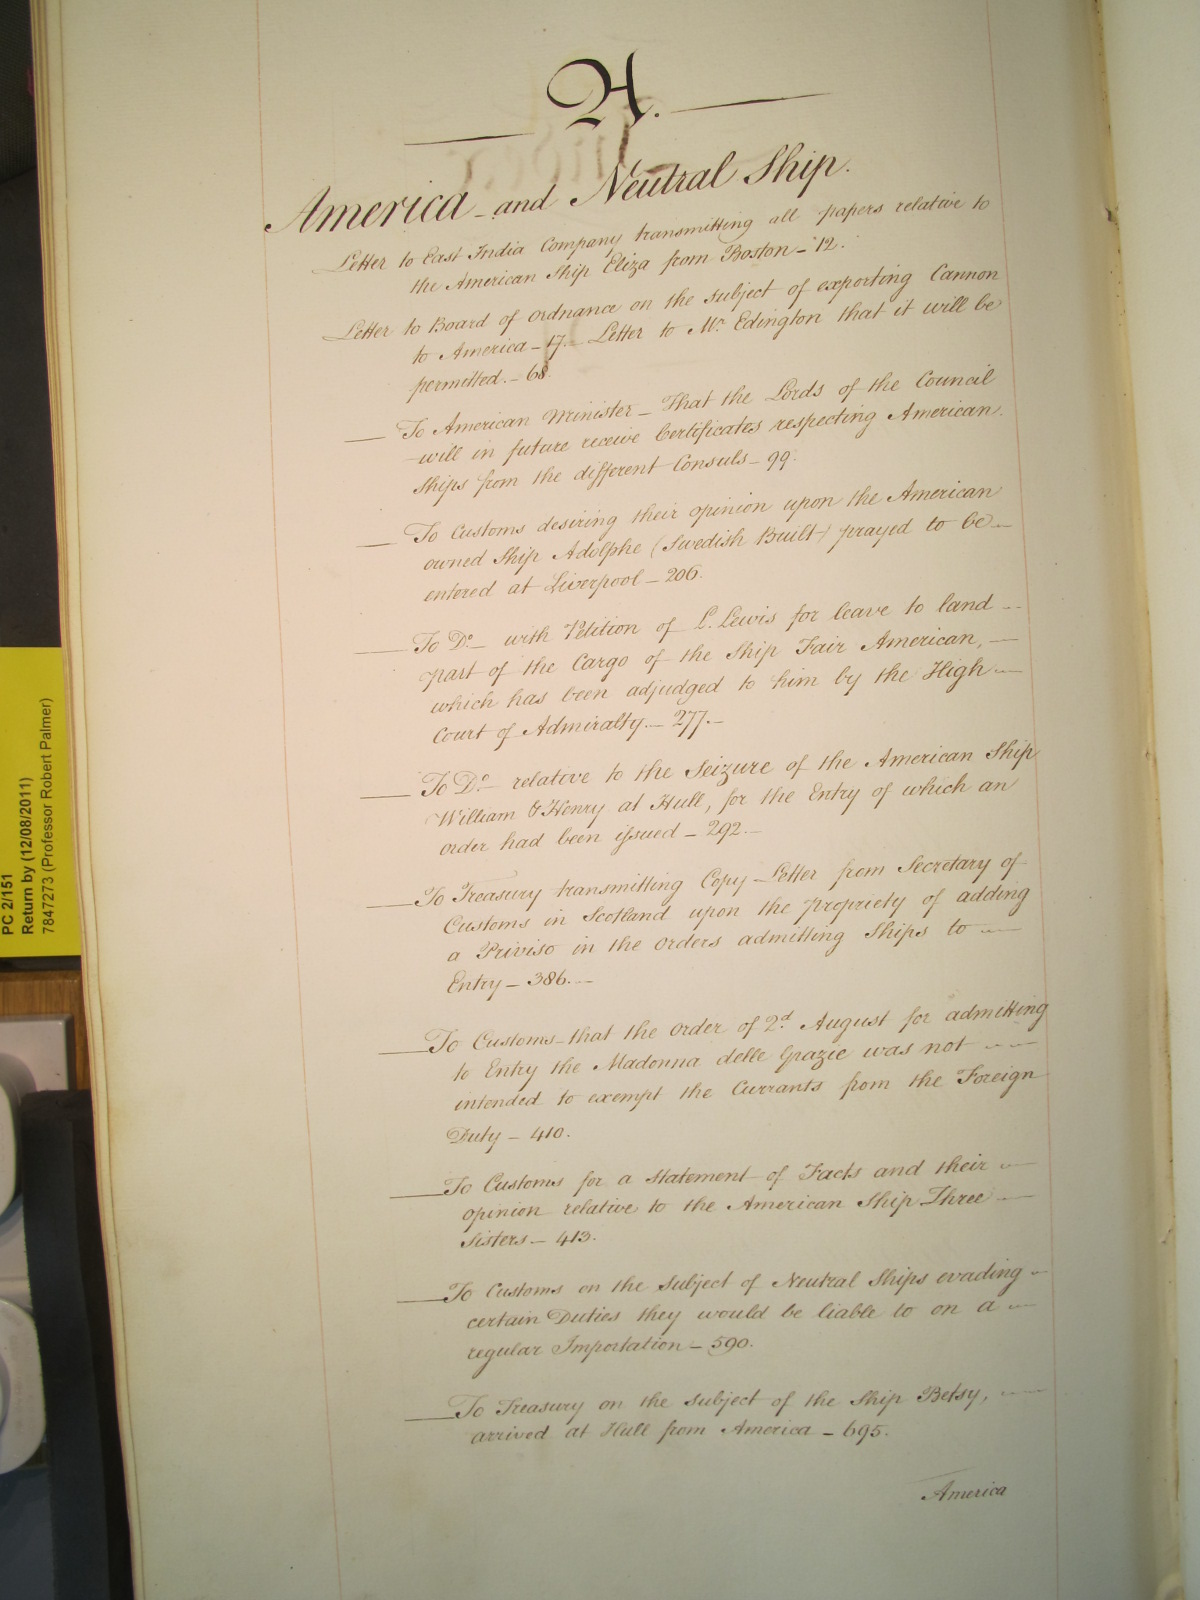 A.
America and Neutral Ship.
Letter to East India Company transmitting all papers relative to
the American Ship Eliza from Boston – 12.
Letter to Board of Ordnance on the subject of exporting Cannon
to America – 17. – Letter to Mr. Edington that it will be
permitted. – 68.
— To American Minister – That the Lords of the Council
will in future receive Certificates respecting American
Ships from the different Consuls – 99.
— To Customs desiring their opinion upon the American
owned Ship Adolphe (Swedish Built) prayed to be –
entered at Liverpool – 206.
— To Do. – with Petition of L. Lewis for leave to land –
part of the Cargo of the Ship Fair American, –
which has been adjudged to him by the High –
Court of Admiralty. – 277. –
— To Do. – relative to the Seizure of the American Ship
William & Henry at Hull, for the Entry of which an
order had been issued – 292. –
— To Treasury transmitting Copy Letter from Secretary of
Customs in Scotland upon the propriety of adding
a Priviso in the orders admitting Ships to –
Entry – 386. –
— To Customs that the order of 2d. August for admitting
to Entry the Madonna delle Grazie was not –
intended to exempt the Currants from the Foreign
Duty – 410.
— To Customs for a Statement of Facts and their –
opinion relative to the American Ship Three –
Sisters – 413.
— To Customs on the Subject of Neutral Ships evading –
certain Duties they would be liable to on a –
regular Importation – 590.
— To Treasury on the subject of the Ship Betsy, –
arrived at Hull from America – 695.
America
PC 2/151
Return by (12/08/2011)
7847273 (Professor Robert Palmer)